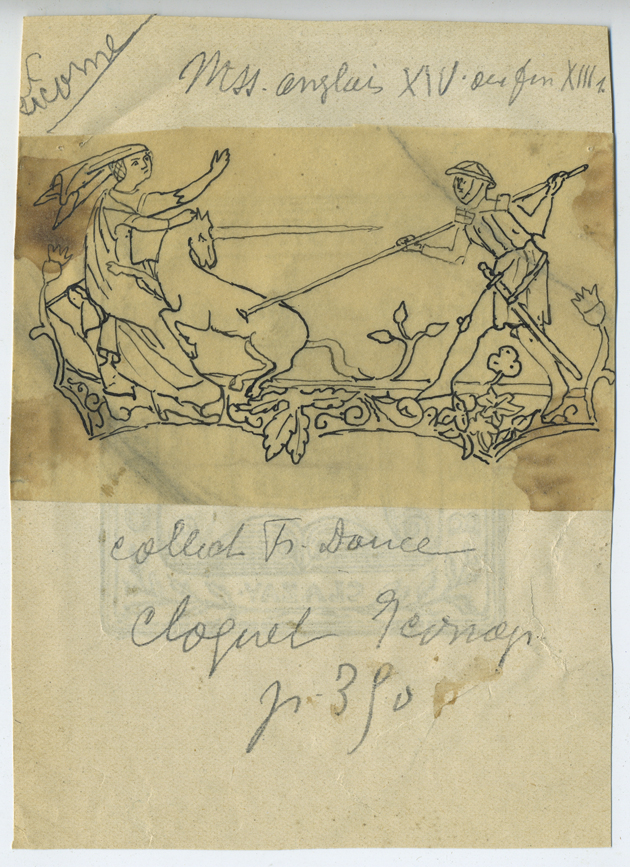 Licorne
Mss. anglais XIV. ou fin XIII s.
collect Fr. Douce
Cloquet Iconogr
p. 390